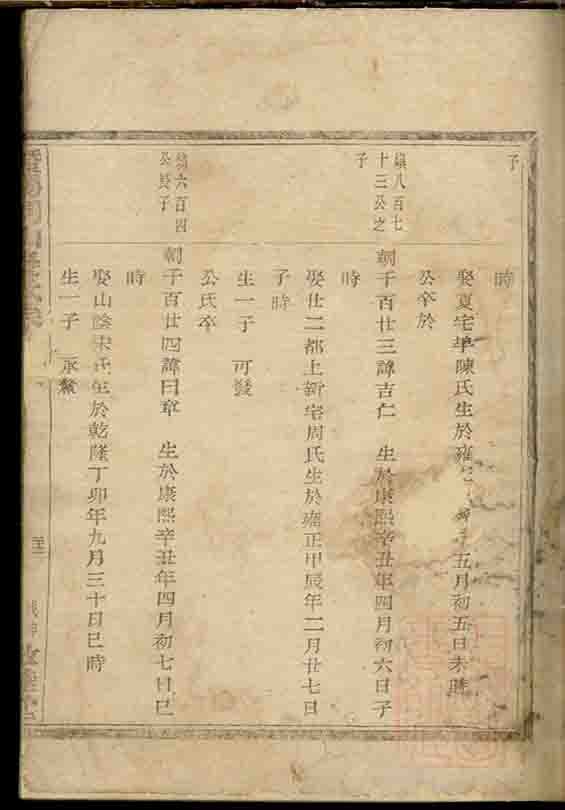 子
時
娶夏宅埠陳氏生於雍 五月初五日未時
公卒於
十三公之
子
朝千百廿三諱吉仁 生於康熙辛丑年四月初六日子
時
娶廿二都上新宅周氏生於雍正甲辰年二月廿七日
子時
生一子 可發
公氏卒
六百四
公長子
朝千百廿四諱曰章 生於康熙辛丑年四月初七日巳
時
娶山陰宋氏生於乾隆丁卯年九月三十日巳時
生一子 永鰲